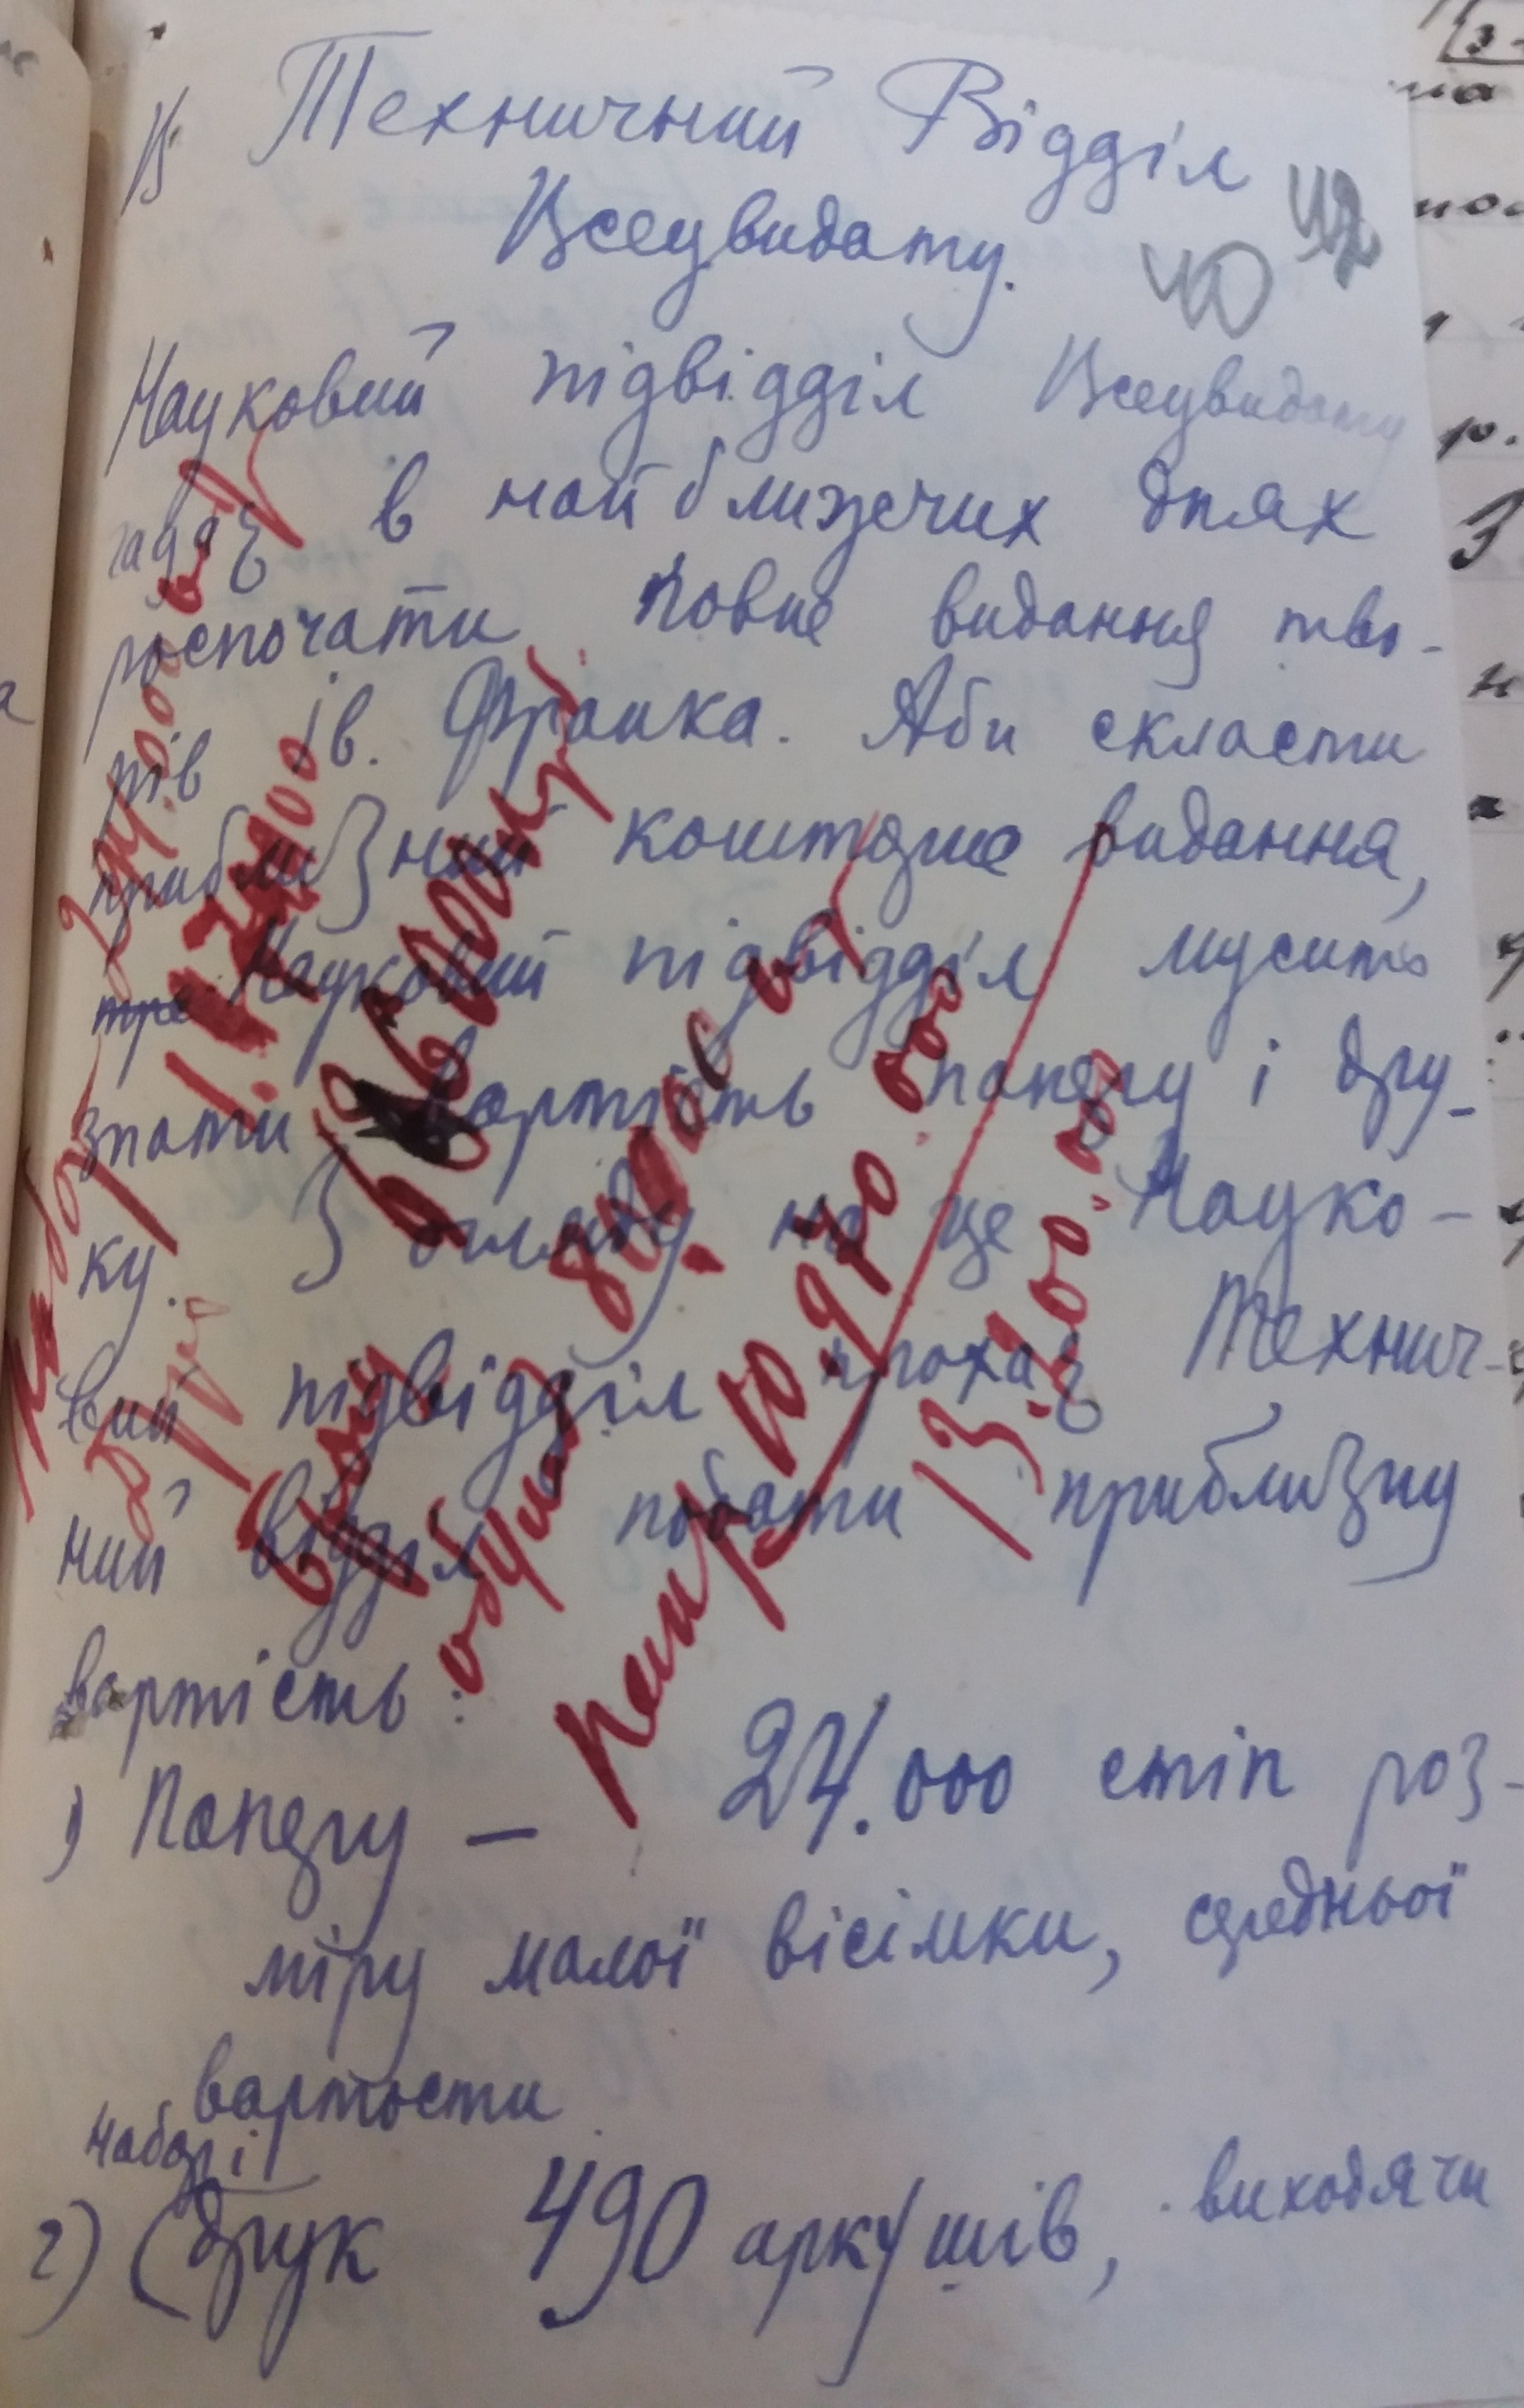 В Технічний Відділ
Всеувидату.
42
40
Науковий підвідділ Всеувидату
гадає в найближчих днях
роспочати повне видання тво-
рів Ів. Франка. Аби скласти
приблизний кошторис видання,
Науковий підвідділ мусить
знати вартість паперу і дру-
ку. З огляду на це Науко-
вий підвідділ прохає Технич-
ний відділ подати приблизну
вартість:
1) Паперу — 24.000 стіп роз-
міру малої вісімки, середньої
вартости
набор і
2) (друк 490 аркушів, виходячи
папір 10.970.000
13.300.000